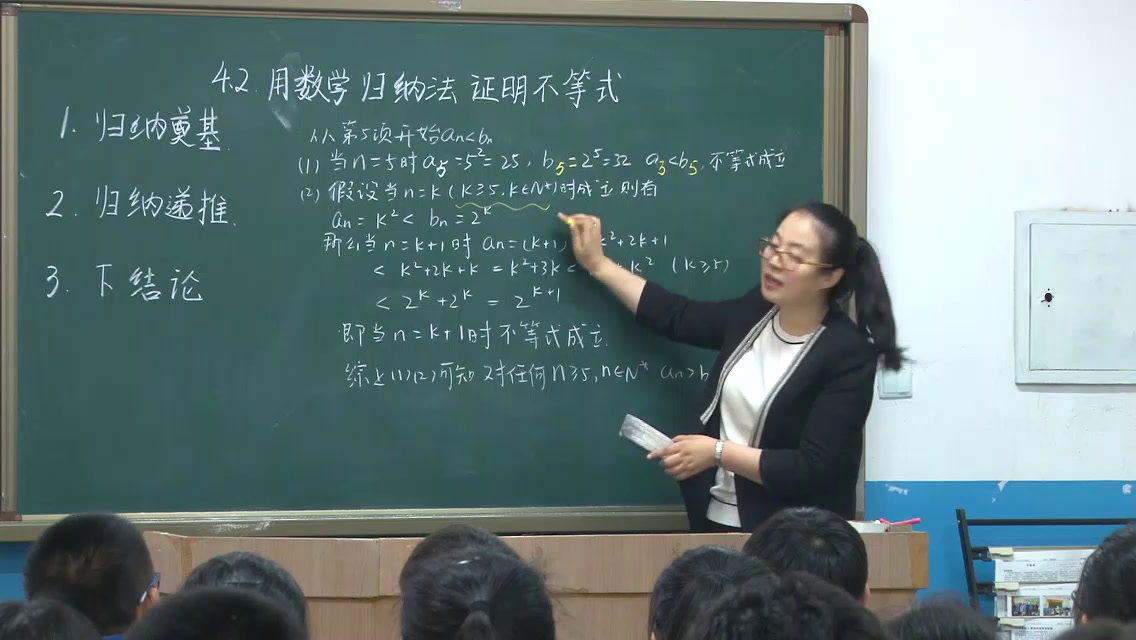 4.2. 用数学归纳法证明不等式
1. 归纳奠基
2. 归纳递推.
3. 下结论
从第5项开始 an<bn
(1) 当n=5时 a5=5²=25, b5=2⁵=32 a5<b5, 不等式成立
(2) 假设当n=k(k≥5,k∈N*)时成立则有
an=k²<bn=2ᵏ
那么当n=k+1时 an=(k+1) k²+2k+1
<k²+2k+k=k²+3k< k² (k≥5)
<2ᵏ+2ᵏ=2ᵏ⁺¹
即当n=k+1时不等式成立.
综上(1)(2)可知 对任何n≥5,n∈N* an>b